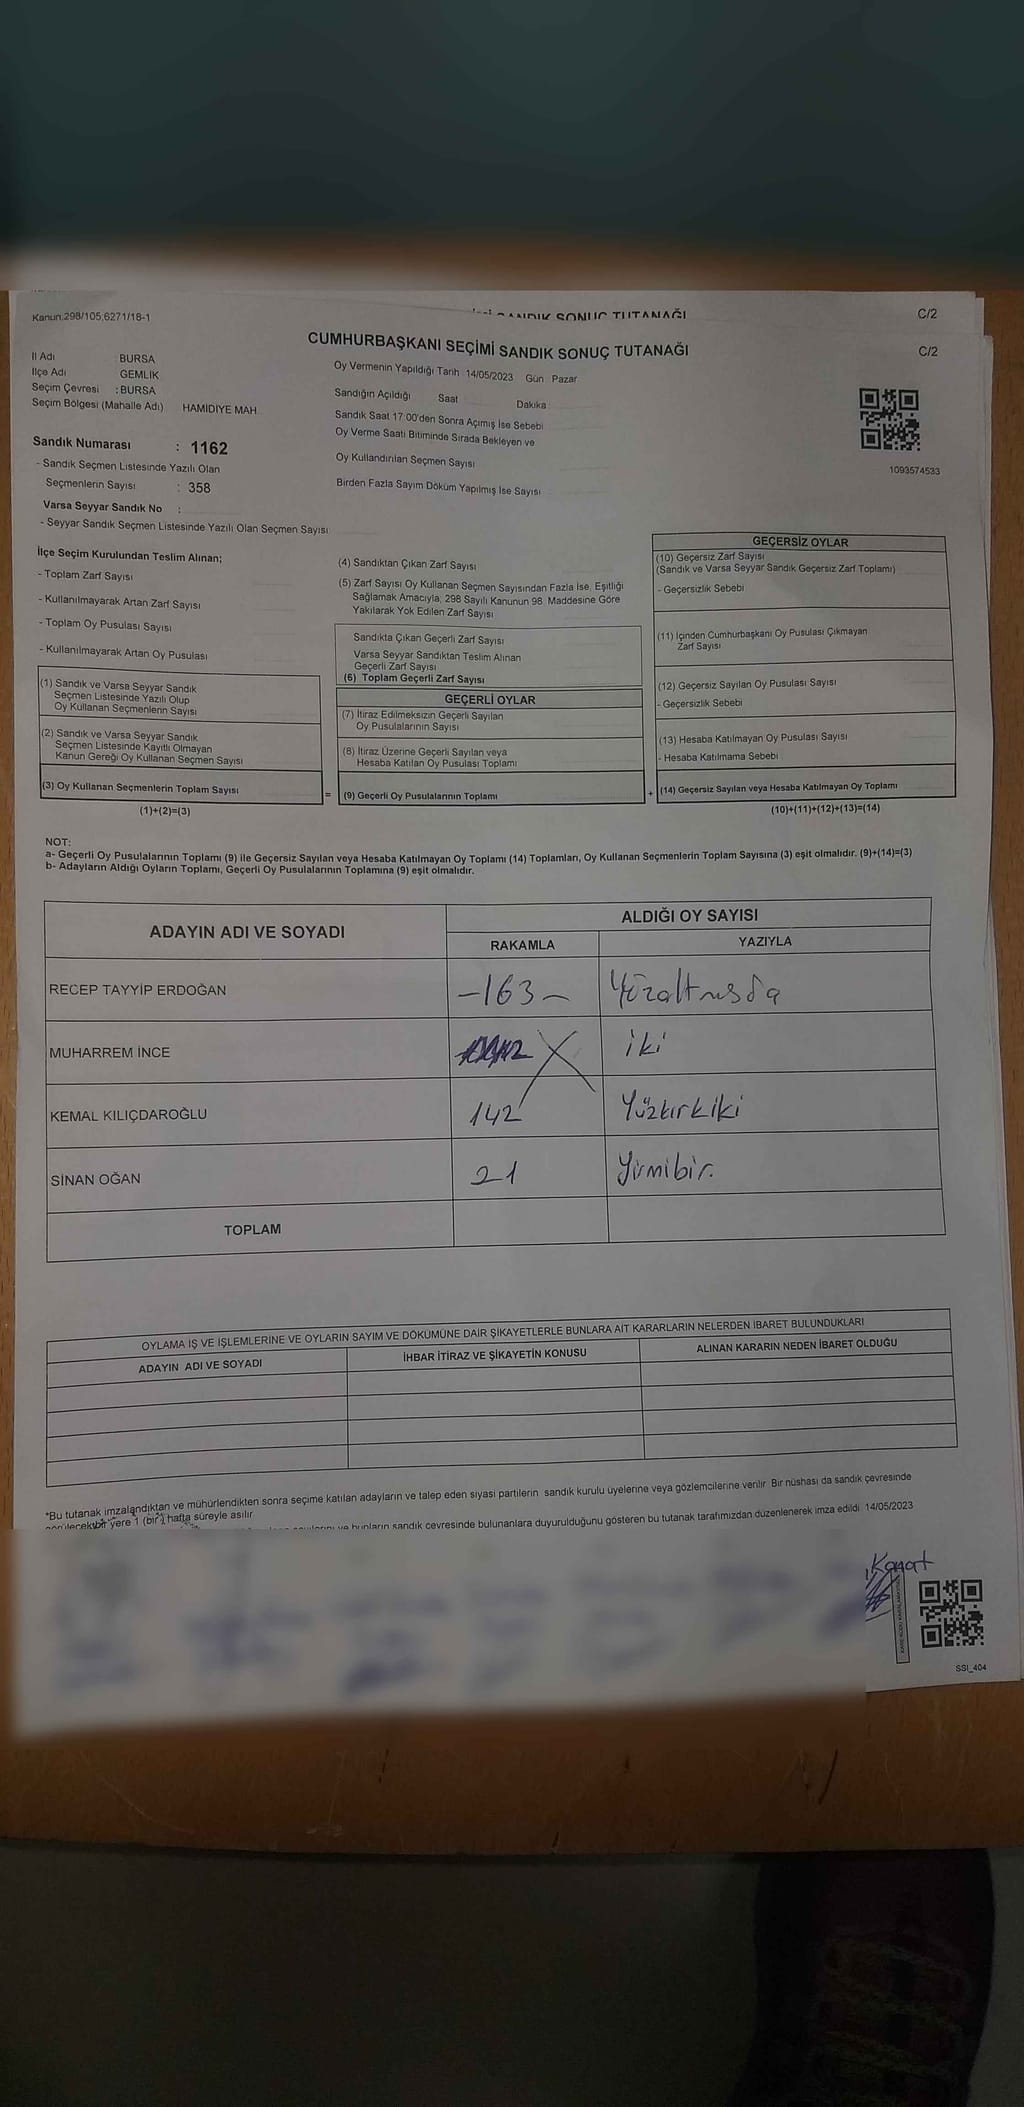 SANDIK SONUÇ TUTANAĞI
C/2
Kanun:298/105,6271/18-1
CUMHURBAŞKANI SEÇİMİ SANDIK SONUÇ TUTANAĞI
C/2
İl Adı : BURSA
İlçe Adı : GEMLIK
Seçim Çevresi : BURSA
Seçim Bölgesi (Mahalle Adı) HAMIDIYE MAH
Sandık Numarası : 1162
- Sandık Seçmen Listesinde Yazılı Olan
Seçmenlerin Sayısı : 358
Varsa Seyyar Sandık No :
- Seyyar Sandık Seçmen Listesinde Yazılı Olan Seçmen Sayısı
Oy Vermenin Yapıldığı Tarih 14/05/2023 Gün Pazar
Sandığın Açıldığı Saat Dakika
Sandık Saat 17:00'den Sonra Açımış İse Sebebi
Oy Verme Saati Bitiminde Sırada Bekleyen ve
Oy Kullandırılan Seçmen Sayısı
Birden Fazla Sayım Döküm Yapılmış İse Sayısı
1093574533
İlçe Seçim Kurulundan Teslim Alınan;
- Toplam Zarf Sayısı
- Kullanılmayarak Artan Zarf Sayısı
- Toplam Oy Pusulası Sayısı
- Kullanılmayarak Artan Oy Pusulası
(1) Sandık ve Varsa Seyyar Sandık
Seçmen Listesinde Yazılı Olup
Oy Kullanan Seçmenlerin Sayısı
(2) Sandık ve Varsa Seyyar Sandık
Seçmen Listesinde Kayıtlı Olmayan
Kanun Gereği Oy Kullanan Seçmen Sayısı
(3) Oy Kullanan Seçmenlerin Toplam Sayısı
(1)+(2)=(3)
=
(4) Sandıktan Çıkan Zarf Sayısı
(5) Zarf Sayısı Oy Kullanan Seçmen Sayısından Fazla İse, Eşitliği
Sağlamak Amacıyla, 298 Sayılı Kanunun 98. Maddesine Göre
Yakılarak Yok Edilen Zarf Sayısı
Sandıkta Çıkan Geçerli Zarf Sayısı
Varsa Seyyar Sandıktan Teslim Alınan
Geçerli Zarf Sayısı
(6) Toplam Geçerli Zarf Sayısı
GEÇERLİ OYLAR
(7) İtiraz Edilmeksizin Geçerli Sayılan
Oy Pusulalarının Sayısı
(8) İtiraz Üzerine Geçerli Sayılan veya
Hesaba Katılan Oy Pusulası Toplamı
(9) Geçerli Oy Pusulalarının Toplamı
+
GEÇERSİZ OYLAR
(10) Geçersiz Zarf Sayısı
(Sandık ve Varsa Seyyar Sandık Geçersiz Zarf Toplamı)
- Geçersizlik Sebebi
(11) İçinden Cumhurbaşkanı Oy Pusulası Çıkmayan
Zarf Sayısı
(12) Geçersiz Sayılan Oy Pusulası Sayısı
- Geçersizlik Sebebi
(13) Hesaba Katılmayan Oy Pusulası Sayısı
- Hesaba Katılmama Sebebi
(14) Geçersiz Sayılan veya Hesaba Katılmayan Oy Toplamı
(10)+(11)+(12)+(13)=(14)
NOT:
a- Geçerli Oy Pusulalarının Toplamı (9) ile Geçersiz Sayılan veya Hesaba Katılmayan Oy Toplamı (14) Toplamları, Oy Kullanan Seçmenlerin Toplam Sayısına (3) eşit olmalıdır. (9)+(14)=(3)
b- Adayların Aldığı Oyların Toplamı, Geçerli Oy Pusulalarının Toplamına (9) eşit olmalıdır.
ADAYIN ADI VE SOYADI
ALDIĞI OY SAYISI
RAKAMLA YAZIYLA
RECEP TAYYİP ERDOĞAN -163-
MUHARREM İNCE 2 iki
KEMAL KILIÇDAROĞLU 142 Yüzkırkiki
SİNAN OĞAN 21 Yirmibir.
TOPLAM
OYLAMA İŞ VE İŞLEMLERİNE VE OYLARIN SAYIM VE DÖKÜMÜNE DAİR ŞİKAYETLERLE BUNLARA AİT KARARLARIN NELERDEN İBARET BULUNDUKLARI
ADAYIN ADI VE SOYADI İHBAR İTİRAZ VE ŞİKAYETİN KONUSU ALINAN KARARIN NEDEN İBARET OLDUĞU
*Bu tutanak imzalandıktan ve mühürlendikten sonra seçime katılan adayların ve talep eden siyasi partilerin sandık kurulu üyelerine veya gözlemcilerine verilir. Bir nüshası da sandık çevresinde
görülecek bir yere 1 (bir) hafta süreyle asılır
ve bunların sandık çevresinde bulunanlara duyurulduğunu gösteren bu tutanak tarafımızdan düzenlenerek imza edildi. 14/05/2023
Kanat
SSI_404